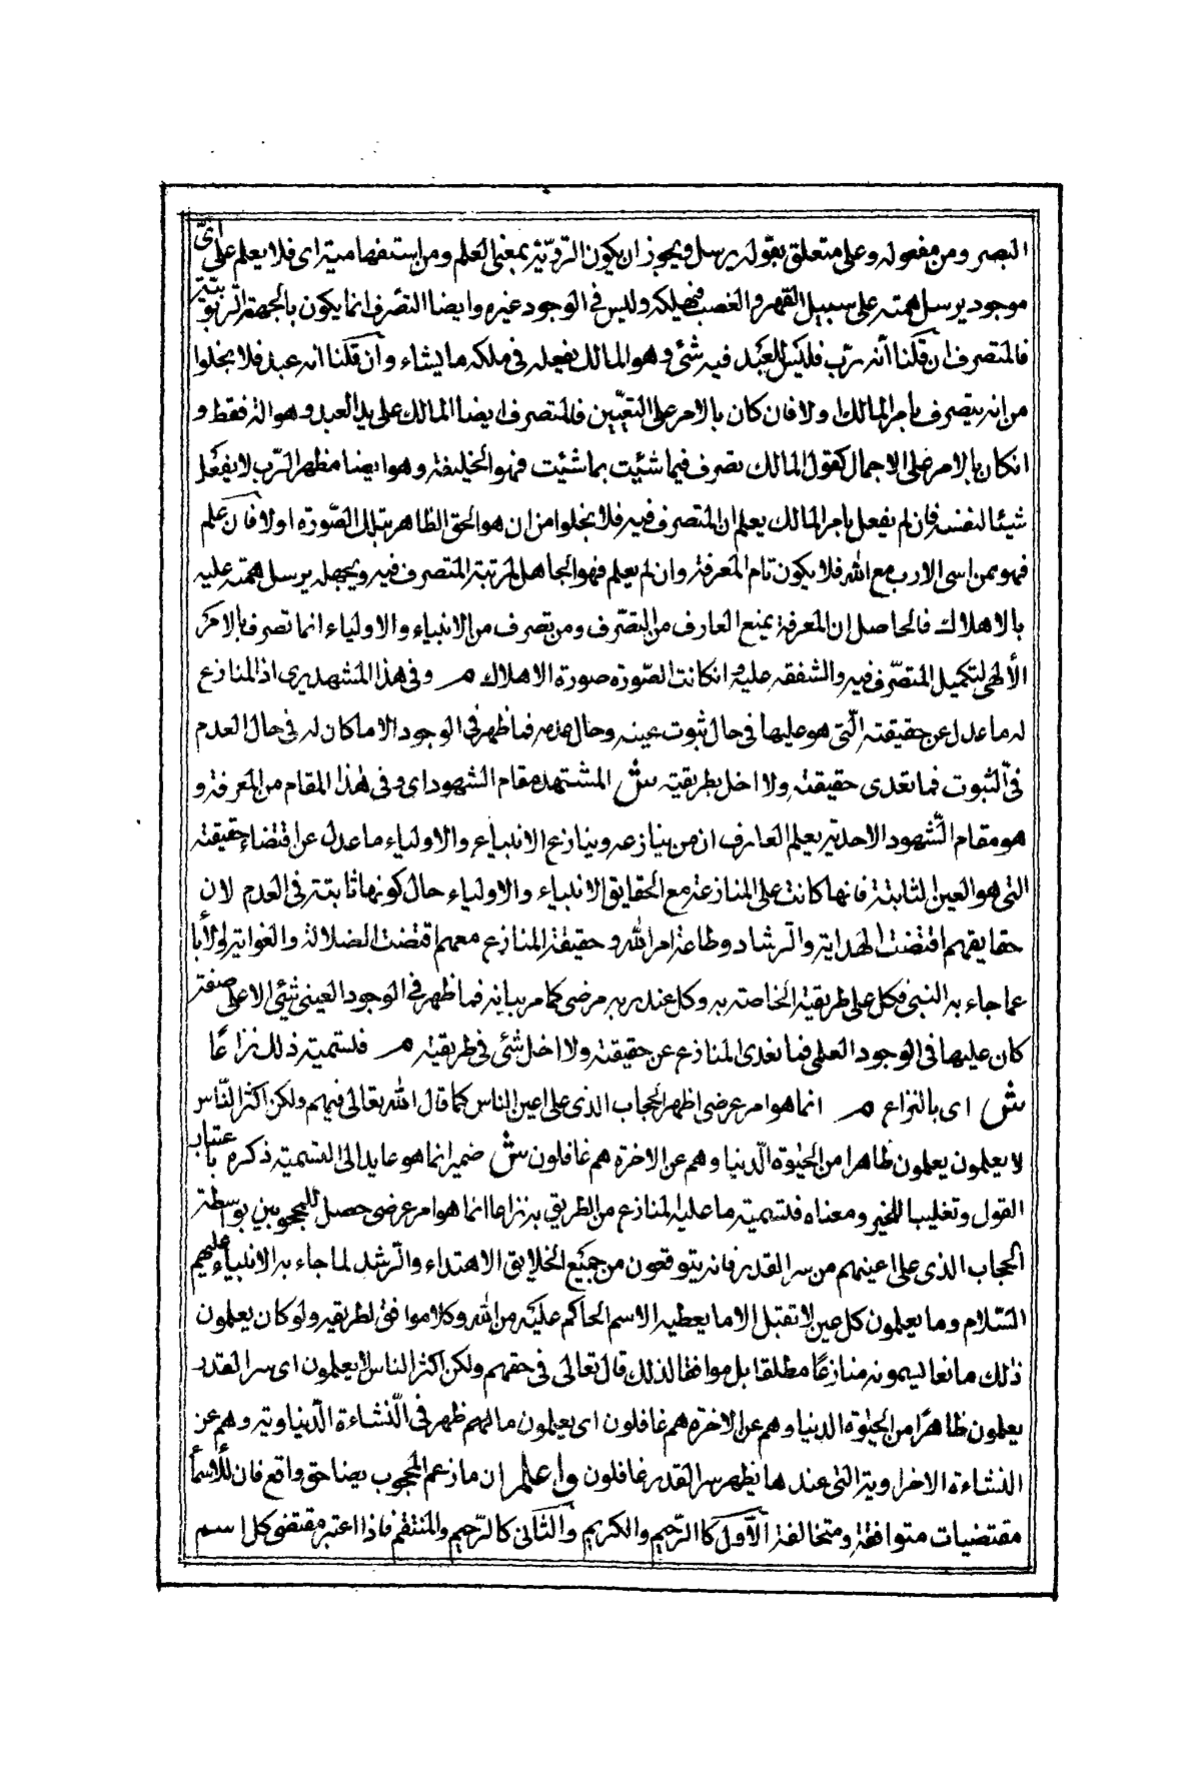 البصر ومن مفعوله وعلى متعلق بقوله يرسل ويجوز ان يكون الرّؤيّة بمعنى العلم ومن استفهامية اى فلا يعلم على اىّ
موجود يرسل همته على سبيل القهر والغصب فيهلكه وليس فى الوجود غيره وايضا التصّرف انما يكون بالجهة الّربوبيّة
فالمتصرف ان قلنا انّه رّب فليس للعبد فيه شئ وهو المالك يفعله فى ملكه ما يشاء وان قلنا انه عبد فلا يخلوا
من انه يتصرف بامر المالك اولا فان كان بالامر على التعيّين فالمتصرف ايضا المالك على يد العبد وهو الة فقط و
انكان بالامر على الاجمال كقول المالك تصرف فيما شئت بما شئت فهو الخليفة وهو ايضا مظهر الرّب لا يفعل
شيئا لنفسه فان لم يفعل بامر المالك يعلم ان المتصرف فيه فلا يخلوا من ان هو الحق الظاهر بتلك الصّورة اولا فان علم
فهو ممن اسى الادب مع الله فلا يكون تام المعرفة وان لم يعلم فهو الجاهل لمرتبة المتصرف فيه ويجهله يرسل همته عليه
بالاهلاك فالحاصل ان المعرفة يمنع العارف من التصّرف ومن تصرف من الانبياء والاولياء انما تصرف بالامر
الألهى لتكميل المتصّرف فيه والشفقه عليه وانكانت الصّورة صورة الاهلاك م وفى هذا المشهد يرى اذ المنازع
له ما عدل عن حقيقته الّتى هو عليها فى حال ثبوت عينه وحال عدمه فما ظهر فى الوجود الا ما كان له فى حال العدم
فى الثبوت فما تعدى حقيقته ولا اخل بطريقته ش المشتهد مقام الشهود اى وفى هذا المقام من المعرفة و
هو مقام الشّهود الاحدية يعلم العارف ان من ينازعه وينازع الانبياء والاولياء ما عدل عن اقتضاء حقيقته
التى هو العين الثابتة فانها كانت على المنازعة مع الحقايق الانبياء والاولياء حال كونها ثابتة فى العدم لان
حقايقهم اقتضت الهداية والرشاد وطاعة امر الله وحقيقة المنازع معهم اقتضت الضلالة والغواية والأبا
عما جاء به النبى فكل على طريقية الخاصته به وكل عند ربه مرضى كما مر بيانه فما ظهر فى الوجود العينى شئ الا على صفة
كان عليها فى الوجود العلمى فما تعدى المنازع عن حقيقته ولا اخل شئ فى طريقته م فلستمية ذلك نزاعًا
ش اى بالنزاع م انما هو امر عرضى اظهر الحجاب الذى على اعين الناس كما قال الله تعالى فيهم ولكن اكثر النّاس
لا يعلمون يعلمون ظاهرا من الحيوة الّدنيا وهم عن الاخرة هم غافلون ش ضمير انما هو عايد الى التسمية ذكره باعتبار
القول وتغليبا للخبر ومعناه فلتسمية ما عليه المنازع من الطريق به نزاعا انما هو امر عرضى حصل للمحجوبين بوسطة
الحجاب الذى على اعينهم من سر القدر فانه يتوقعون من جميع الخلايق الاهتداء والرّشد لما جاء به الانبياء عليهم
السّلام وما يعلمون كل عين لا تقبل الا ما يعطيه الاسم الحاكم عليه من الله وكلا موافق لطريقه ولو كان يعلمون
ذلك ما نعا ليمونه منازعًا مطلقا بل موافقا لذلك قال تعالى فى حقهم ولكن اكثر الناس لا يعلمون اى سر القدر
يعلمون ظاهرًا من الحيوة الدنيا وهم عن الاخرة هم غافلون اى يعلمون ما لهم ظهر فى الّنشاءة الّدنياوية وهم عن
النشاءة الاخراوية التى عندها يظهر سر القدر غافلون واعلم ان ما زعم المحجوب يضا حق واقع فان للأسمأ
مقتضيات متوافقة ومتخالفة الأول كا الرّحيم والكريم والثانى كالرّحيم والمنتقم فاذا اعتبر مقتضى كل اسم